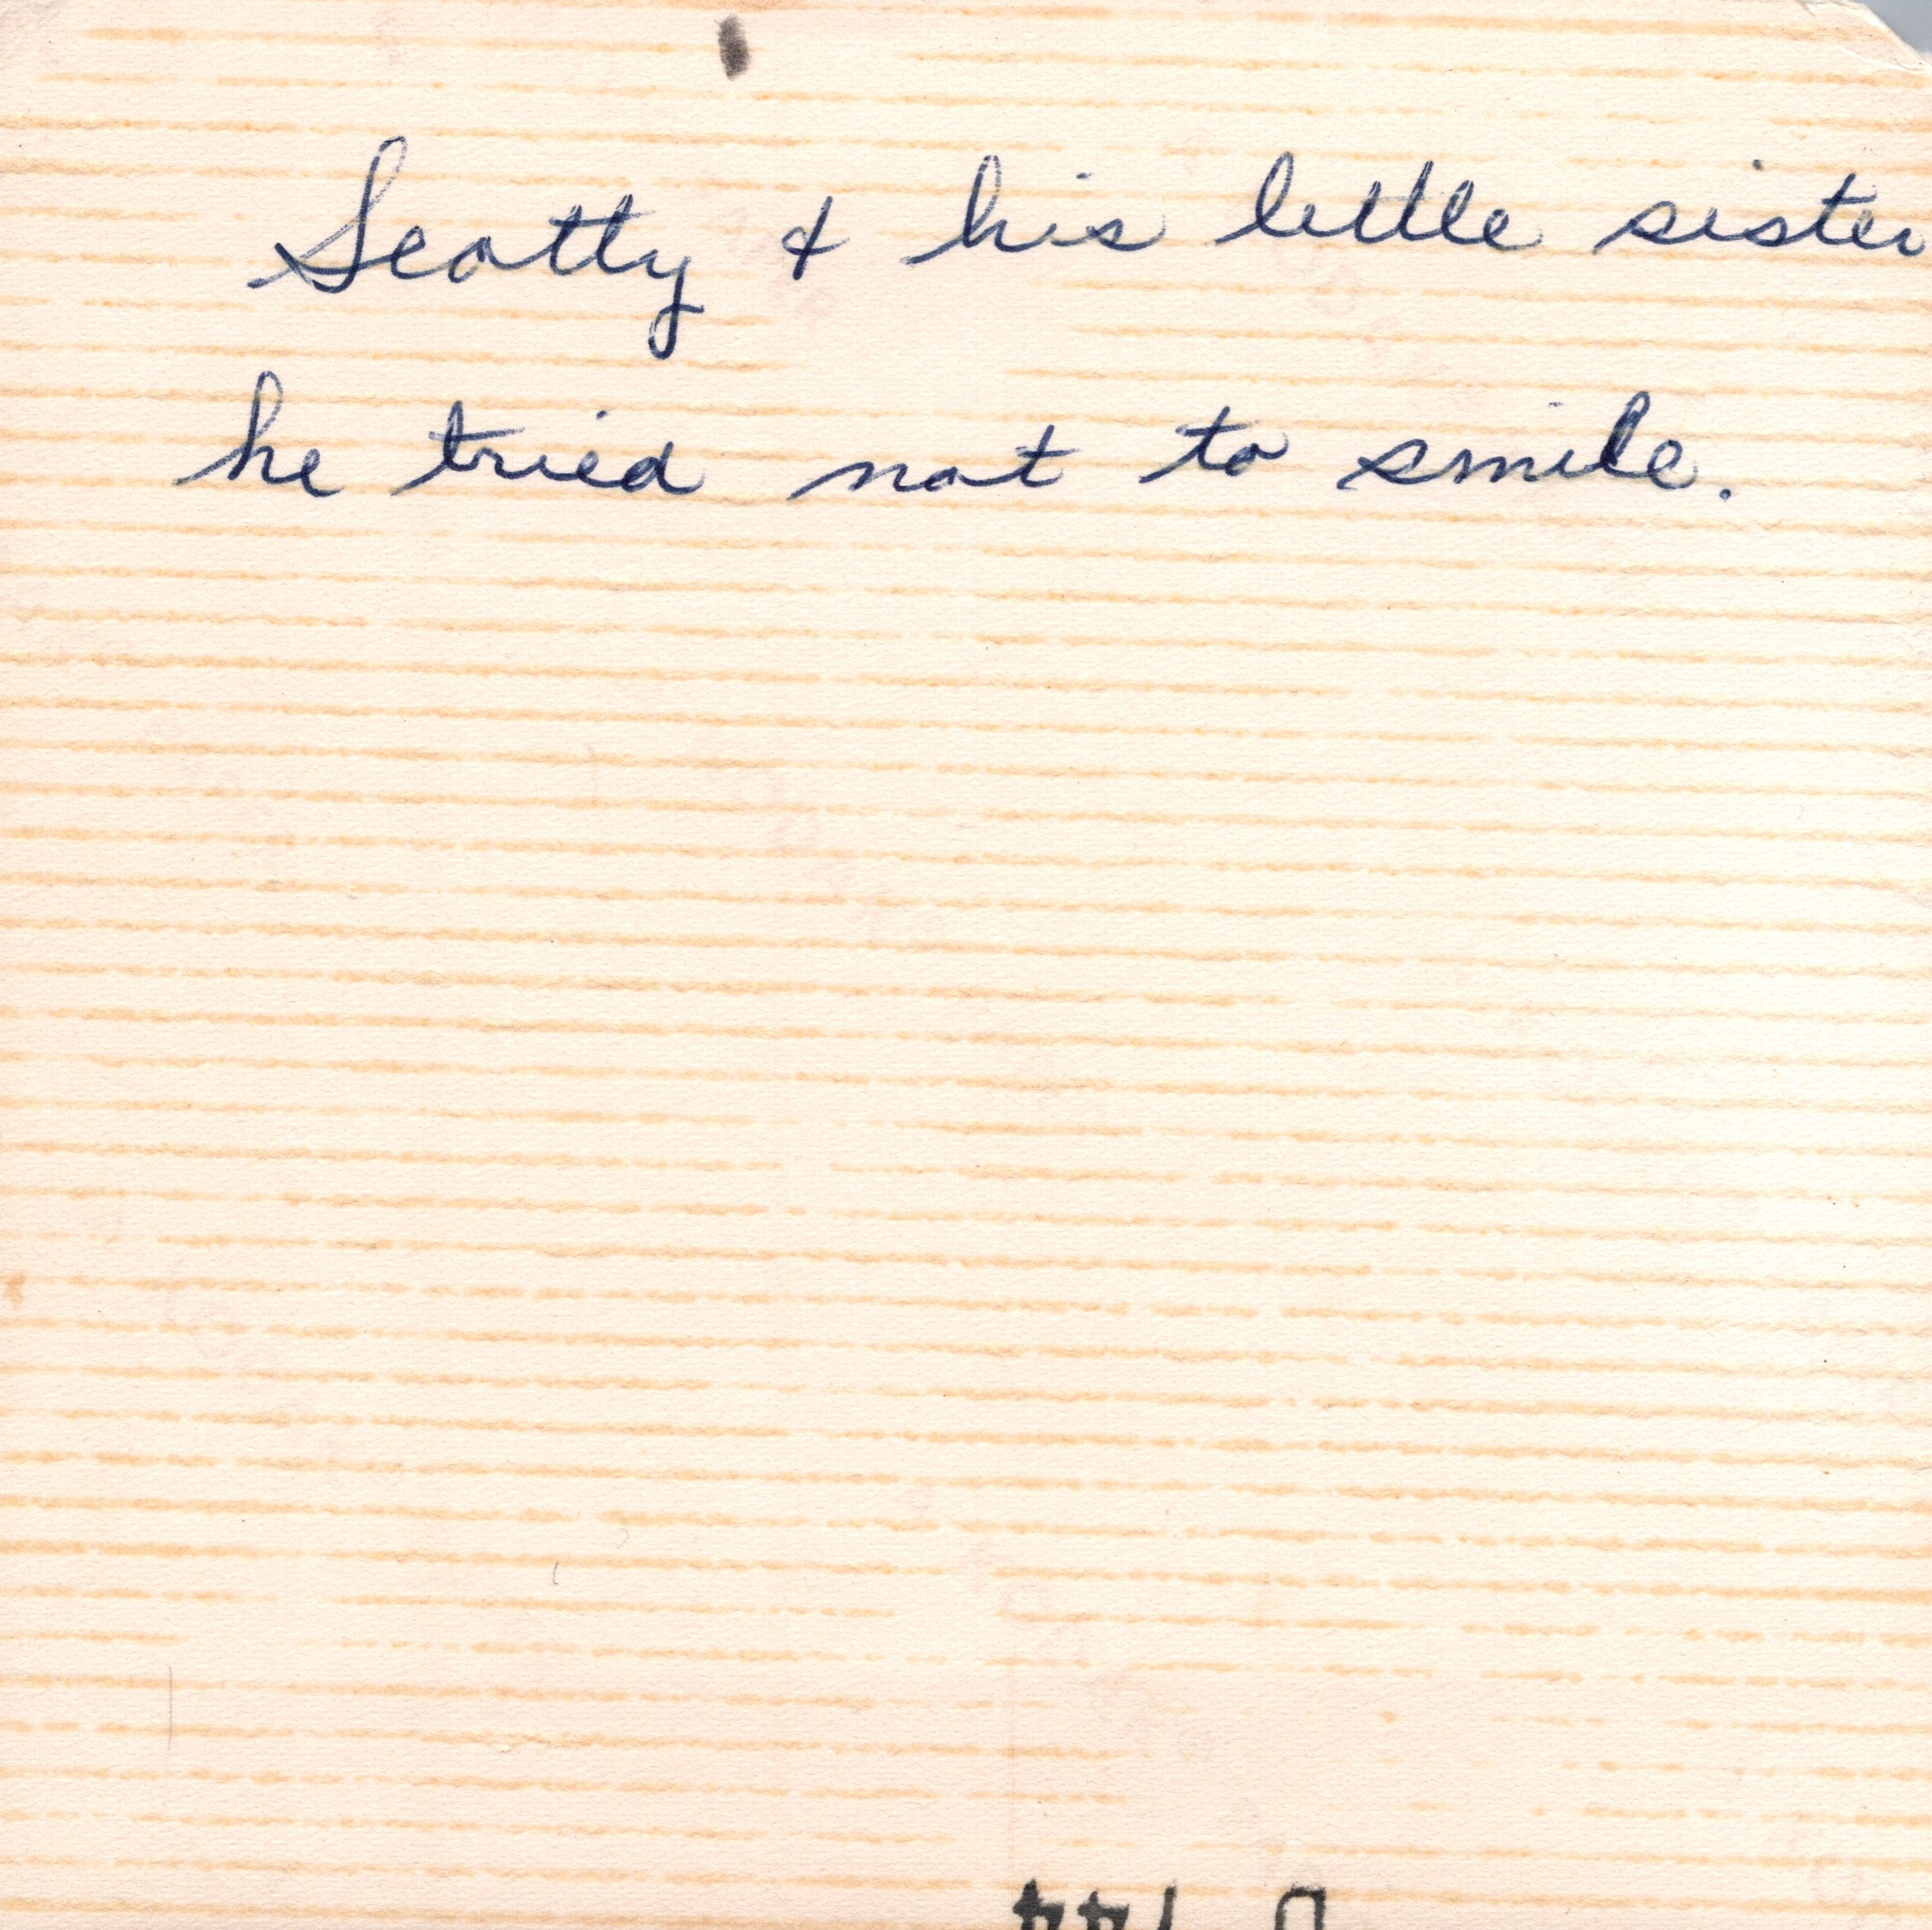 Scotty & his little sister
he tried not to smile.